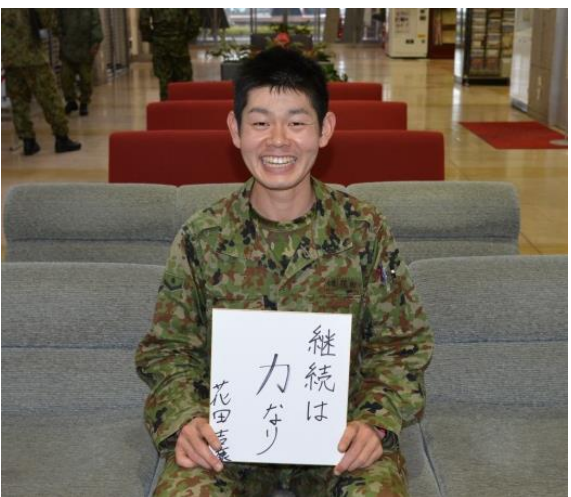 継続は
力なり
花田吉